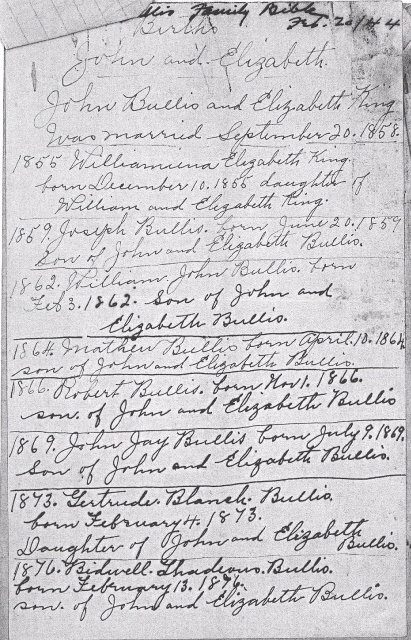 llis Family Bible
Feb. 20/44
Births
John and Elizabeth
John Bullis and Elizabeth King
Was married September 20. 1858.
1855 Williamina Elizabeth King.
born December 10. 1855 daughter of
William and Elizabeth King.
1859. Joseph Bullis. born June 20. 1859
son of John and Elizabeth Bullis.
1862. William. John Bullis. born
Feb 3. 1862. Son of John and
Elizabeth Bullis.
1864. Mathew Bullis born April. 10. 1864
son of John and Elizabeth Bullis.
1866. Robert Bullis. born Nov 1. 1866.
son. of John and Elizabeth Bullis
1869. John Jay Bullis born July 9. 1869.
Son of John and Elizabeth Bullis.
1873. Gertrude. Blanch. Bullis.
born February 4. 1873.
Daughter of John and Elizabeth
Bullis.
1876. Bidwell. Thadeous. Bullis.
born February 13. 1876.
son. of John and Elizabeth Bullis.